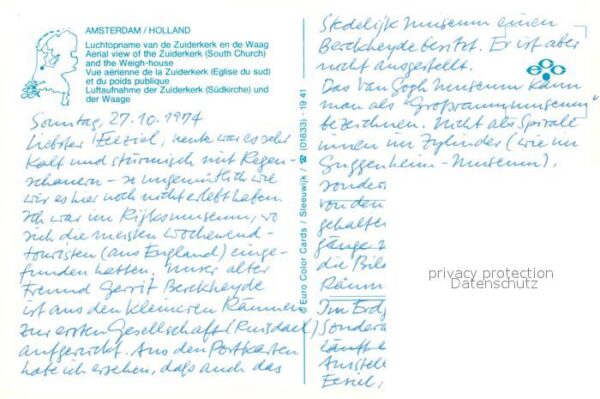 AMSTERDAM / HOLLAND
Luchtopname van de Zuiderkerk en de Waag
Aerial view of the Zuiderkerk (South Church)
and the Weigh-house
Vue aérienne de la Zuiderkerk (Eglise du sud)
et du poids publique
Luftaufnahme der Zuiderkerk (Südkirche) und
der Waage
Sonntag, 27.10.1974
Liebster Eeziel, heute war es sehr
kalt und stürmisch mit Regen-
schauern - so ungemütlich wie
wir es hier noch nicht erlebt haben.
Ich war im Rijksmuseum, wo
sich die meisten Wochenend-
touristen (aus England) einge-
funden hatten. Unser alter
Freund Gerrit Berckheyde
ist aus den kleineren Räumen
zur ersten Gesellschaft (Ruisdael)
aufgerückt. Aus den Postkarten
habe ich ersehen, daß auch das
© Euro Color Cards / Sleeuwijk / ☎ (01833) - 19 41
Stedelijk Museum einen
Berckheyde besitzt. Er ist aber
nicht ausgestellt.
Das Van Gogh Museum kann
man als "Großraummuseum"
bezeichnen. Nicht als Spirale
innen im Zylinder (wie im
Guggenheim-Museum),
sondern
von den
gehalten
gänge z
die Bil
Räum
Im Erdg
Sonder
läuft e
Ausstell
Eeziel,
privacy protection
Datenschutz